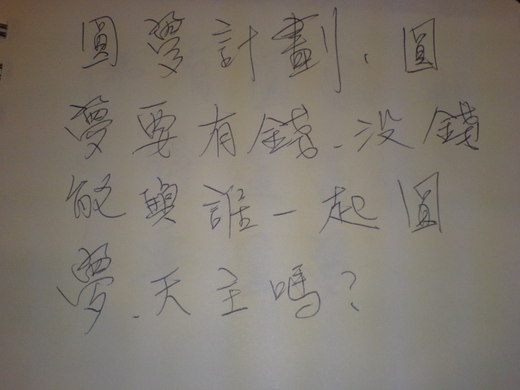 圓夢計劃、圓
夢要有錢、沒錢
能與誰一起圓
夢、天主嗎?